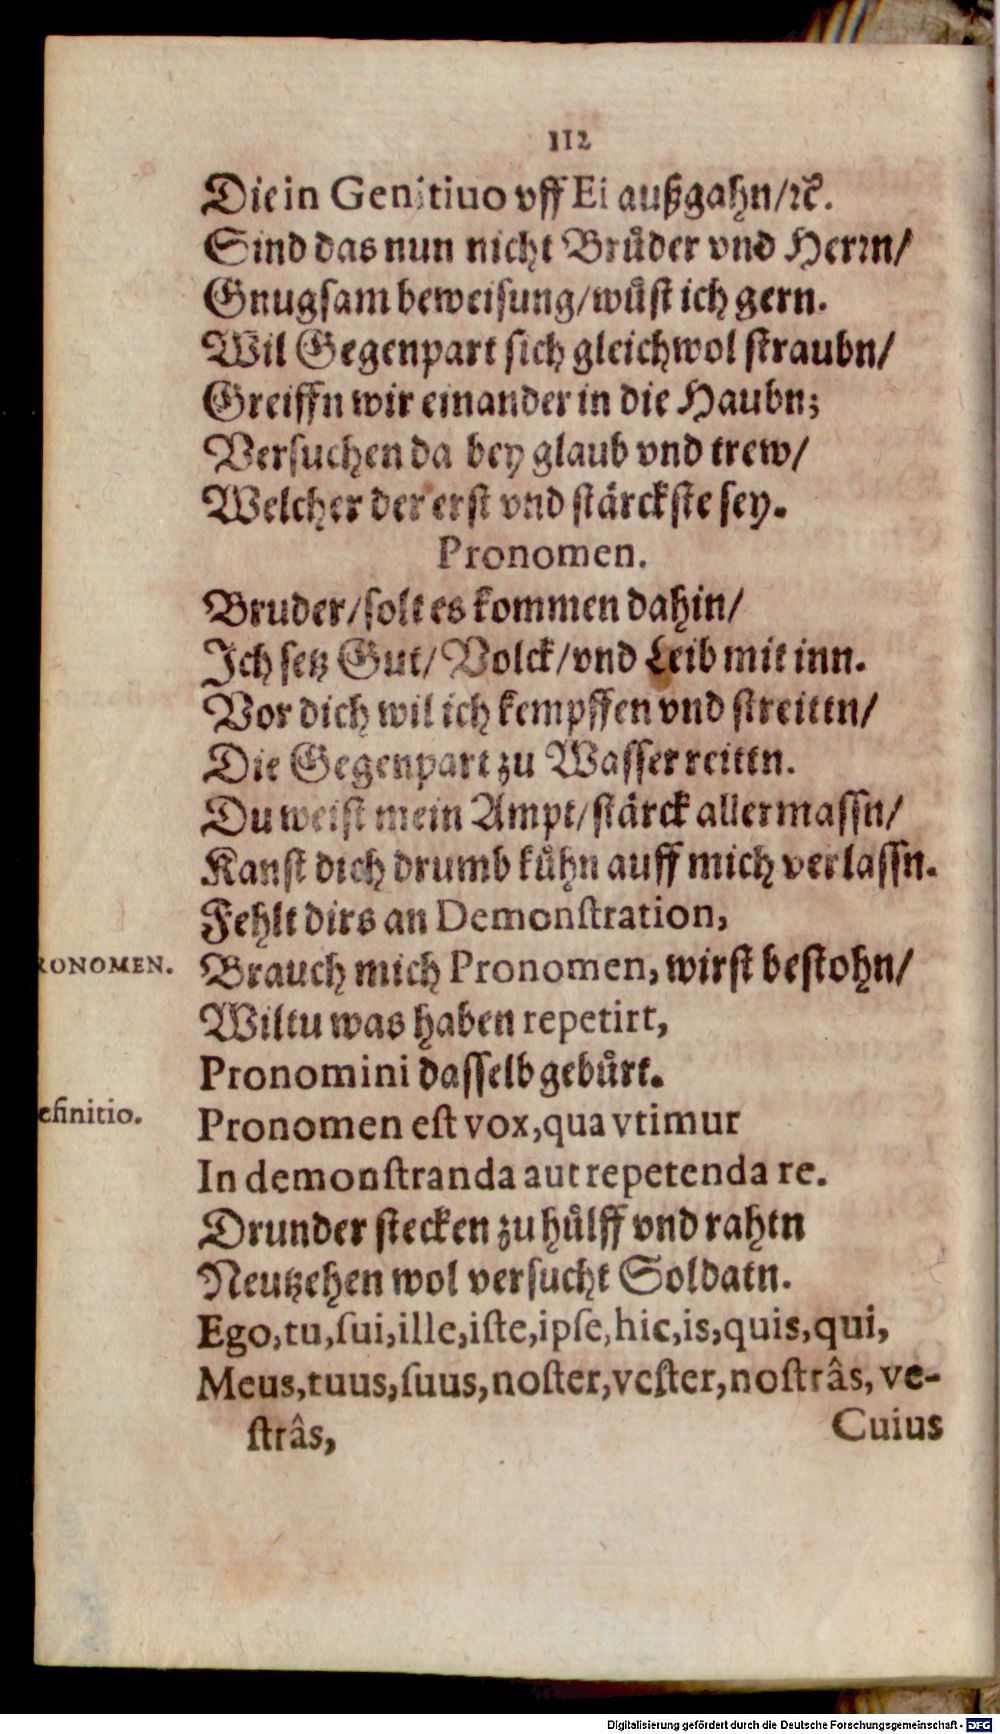 112
Die in Genitiuo vff Ei außgahn/ꝛc̃.
Sind das nun nicht Bruͤder vnd Herꝛn/
Gnugsam beweisung/wuͤst ich gern.
Wil Gegenpart sich gleichwol straubn/
Greiffn wir einander in die Haubn;
Versuchen da bey glaub vnd trew/
Welcher der erst vnd staͤrckste sey.
Pronomen.
Bruder/solt es kommen dahin/
Ich setz Gut/Volck/vnd Leib mit inn.
Vor dich wil ich kempffen vnd streittn/
Die Gegenpart zu Wasser reittn.
Du weist mein Ampt/staͤrck allermassn/
Kanst dich drumb kuͤhn auff mich verlassn.
Fehlt dirs an Demonſtration,
RONOMEN. Brauch mich Pronomen, wirst bestohn/
Wiltu was haben repetirt,
Pronomini dasselb gebuͤrt.
efinitio. Pronomen eſt vox,qua vtimur
In demonſtranda aut repetenda re.
Drunder stecken zu huͤlff vnd rahtn
Neutzehen wol versucht Soldatn.
Ego,tu,ſui,ille,iſte,ipſe,hic,is,quis,qui,
Meus,tuus,ſuus,noſter,veſter,noſtrâs, ve-
ſtrâs, Cuius
Digitalisierung gefördert durch die Deutsche Forschungsgemeinschaft - DFG